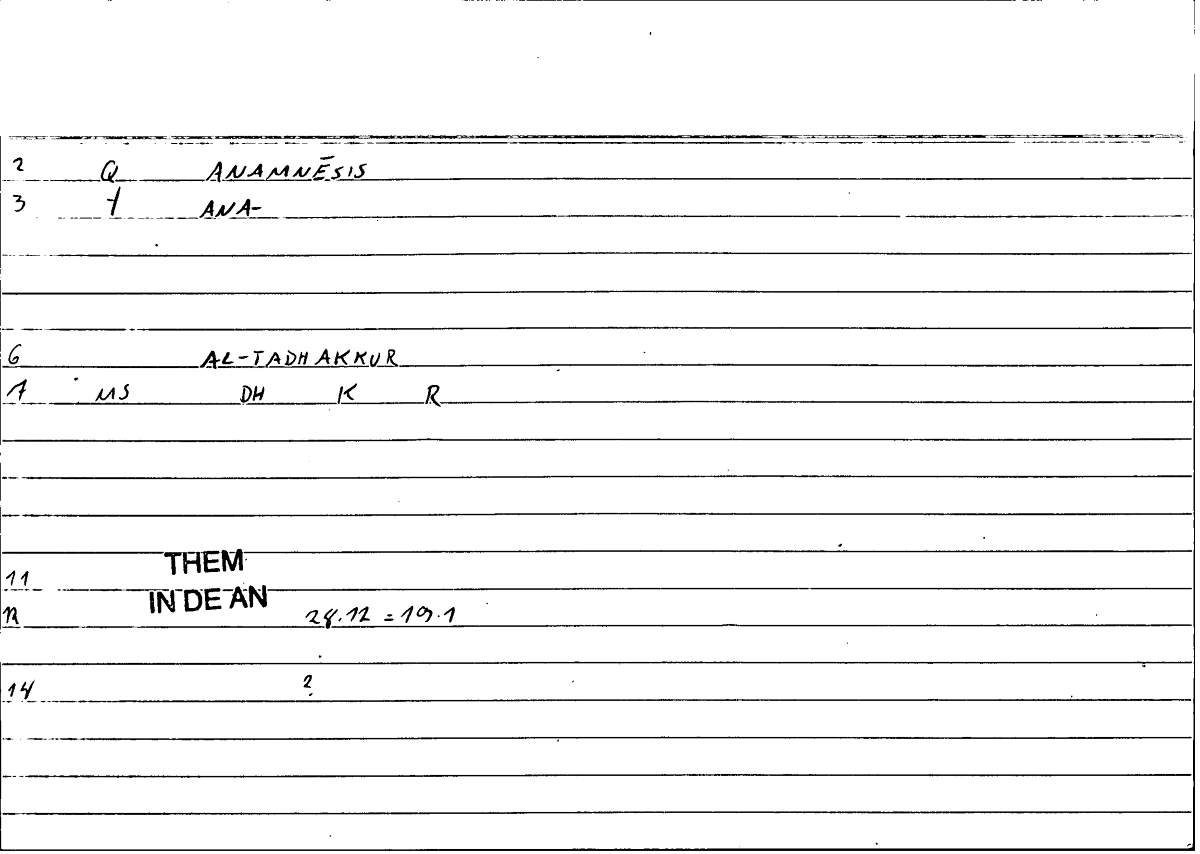 2 Q ANAMNĒSIS
3 ANA-
6 AL-TADHAKKUR
7 MS DH K R
THEM
11
IN DE AN
12 28.12 = 19.1
14 ?